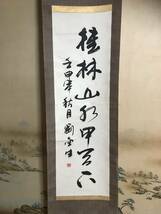 桂林山水甲天下
壬申年秋月劉